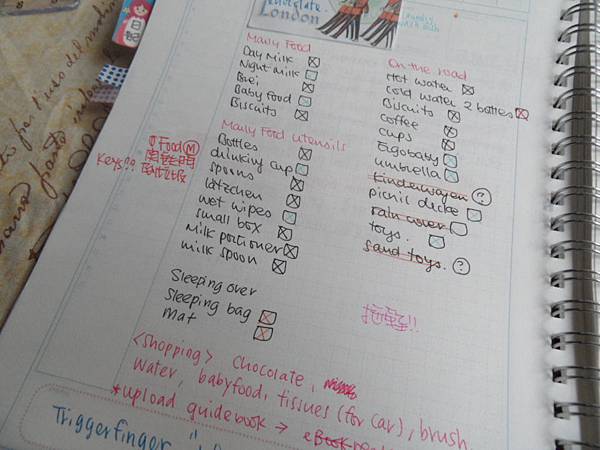 chocolate
London
Many Food
Day Milk
Night-milk
Brei
Baby Food
Biscuits
Many Food utensils
Bottles
drinking cup
spoons
Lätzchen
wet wipes
small box
milk portioner
milk spoon
Sleeping over
Sleeping bag
mat
Food M
Keys??
On the road
Hot water
cold water 2 bottles
Biscuits
coffee
cups
Ergobaby
umbrella
Kinderwagen ?
picnic decke
rain cover
toys.
sand toys. ?
<shopping> chocolate,
water, babyfood, tissues (for car), brush
*upload guidebook → eBook
Triggerfinger